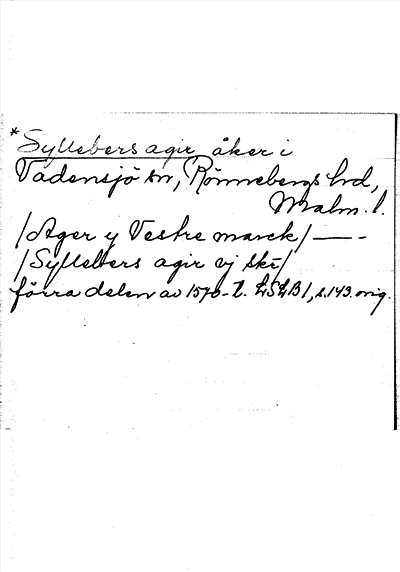 *Syllebers agir, åker i
Vadensjö sn, Rönnebergs hd,
Malm. l.
/Ager y Vestre marck/ —–
/Syllebers agir vj ske/
förra delen av 1570-t. LSLB 1, s. 143. orig.